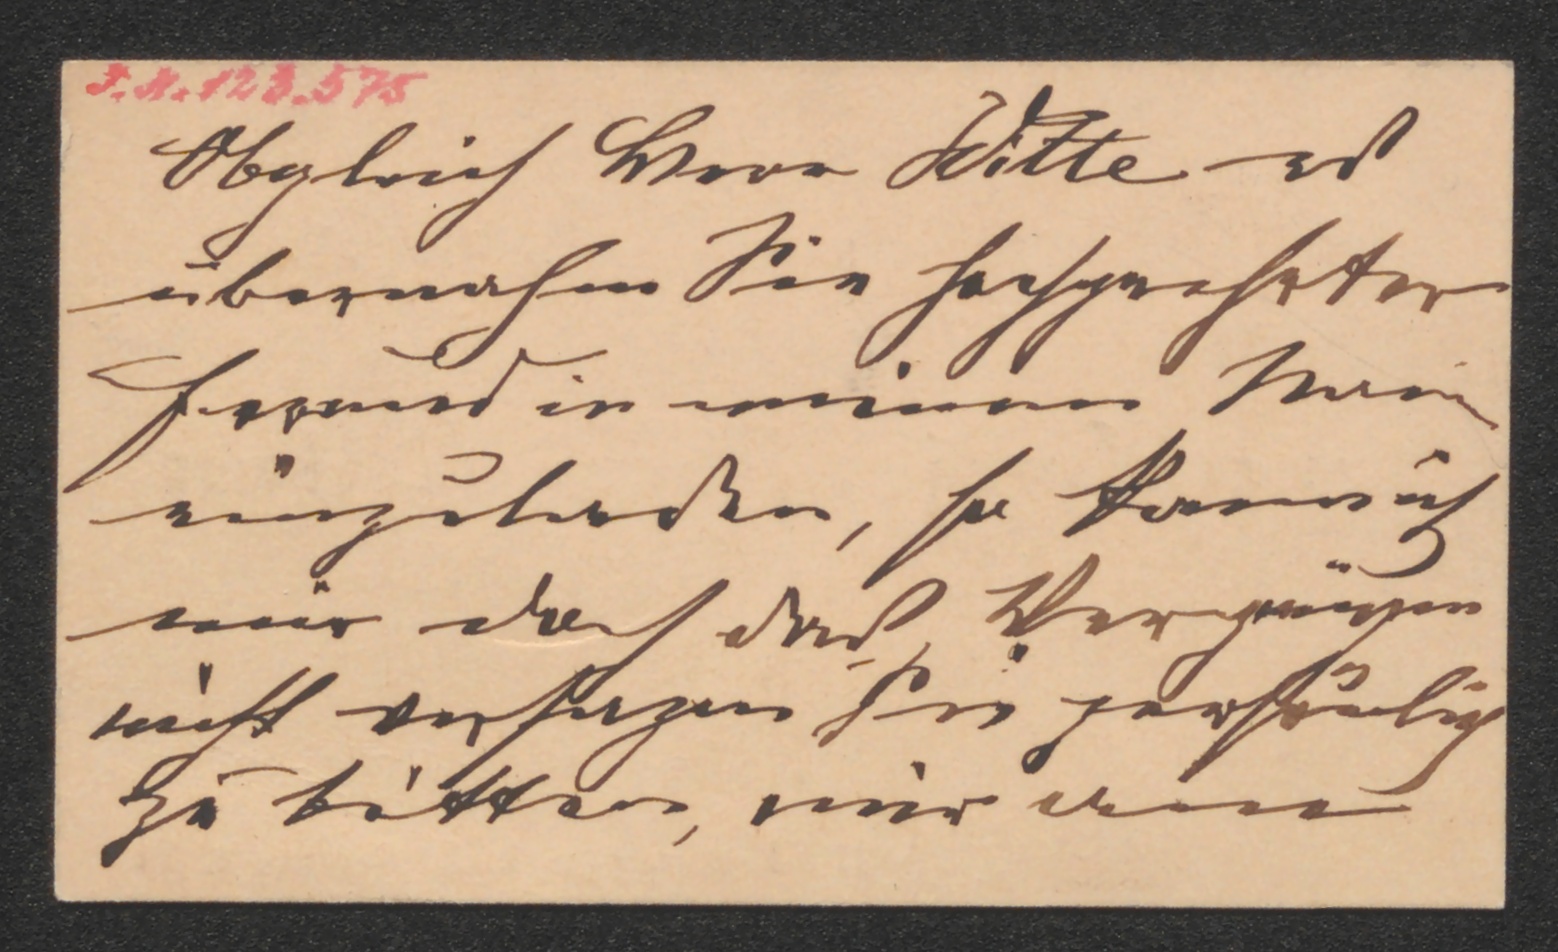 I.N. 123.575
Obgleich Herr Witte es
übernahm Sie hochgeehrter
Freund in meinem Namen
einzuladen, so kann ich
mir doch das Vergnügen
nicht versagen Sie persönlich
zu bitten, mir den